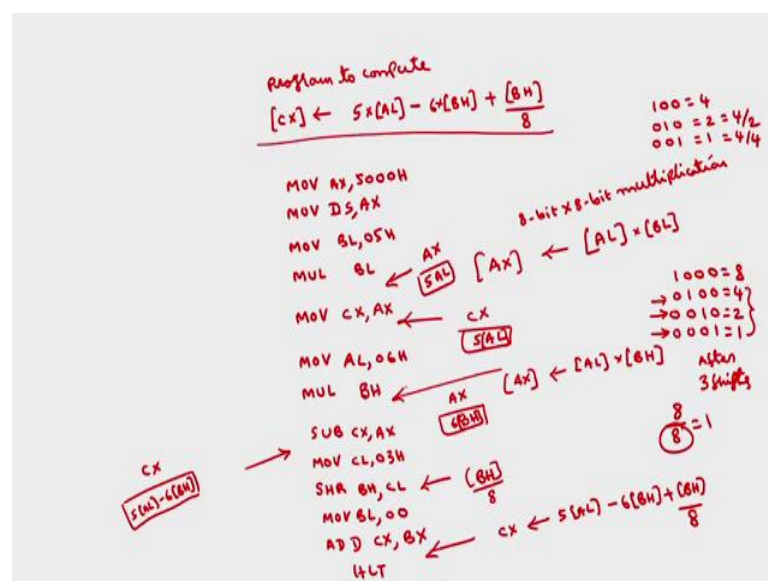 Program to compute
[CX] ← 5×[AL] - 6×[BH] + [BH]/8
100 = 4
010 = 2 = 4/2
001 = 1 = 4/4
MOV AX,5000H
MOV DS,AX
8-bit × 8-bit multiplication
MOV BL,05H
MUL BL ← AX 5AL [AX] ← [AL] × [BL]
MOV CX,AX ← CX 5[AL]
1000 = 8
→ 0100 = 4
→ 0010 = 2
→ 0001 = 1
After
3 shifts
8/8 = 1
MOV AL,06H
MUL BH ← AX 6[BH] [AX] ← [AL] × [BH]
CX 5[AL]-6[BH] → SUB CX,AX
MOV CL,03H
SHR BH,CL ← [BH]/8
MOV BL,00
ADD CX,BX ← CX ← 5[AL] - 6[BH] + [BH]/8
HLT